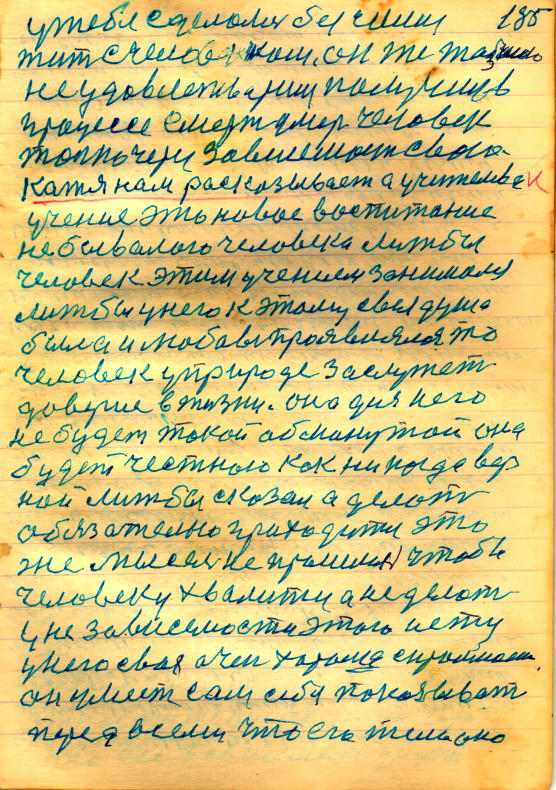 185
у тебе сделалися без чини
жит с человеком. он же тоже
не удовлетварил получив
процессе смерт умер человек
за
Катя нам расказывает а учитель К
учение это новое воспитание
небывалого человека лижбы
человек этим учением занимался
лижбы у него к этому своя душа
была и любов проявляла то
человек у природе заслужет
доверие в жизни. она для него
не будет такой обманутой она
будет честною как никогда вер
ной лижбы сказал а делать
обязательно приходится это
же мысля не пришла чтобы
человеку хвалится а не делат
у независемости этого нету
у него своя очен хорошая
он умеет сам себя показыват
перед всеми что его тело оно